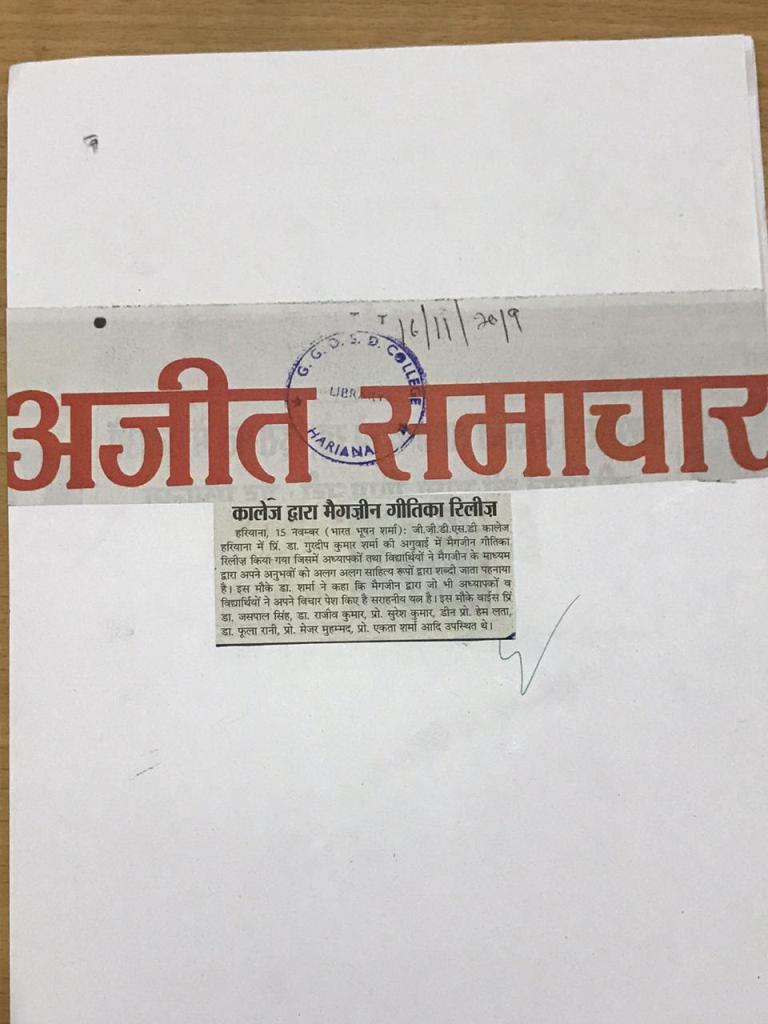 16/11/2019
G. G. D. S. D. COLLEGE
LIBRARY
HARIANA
अजीत समाचार
कालेज द्वारा मैगज़ीन गीतिका रिलीज़
हरियाना, 15 नवम्बर (भारत भूषन शर्मा): जी.जी.डी.एस.डी कालेज
हरियाना में प्रिं. डा. गुरदीप कुमार शर्मा की अगुवाई में मैगजीन गीतिका
रिलीज़ किया गया जिसमें अध्यापकों तथा विद्यार्थियों ने मैगजीन के माध्यम
द्वारा अपने अनुभवों को अलग अलग साहित्य रूपों द्वारा शब्दो जाता पहनाया
है। इस मौके डा. शर्मा ने कहा कि मैगजीन द्वारा जो भी अध्यापकों व
विद्यार्थियों ने अपने विचार पेश किए है सराहनीय यत्न है। इस मौके वाईस प्रिं
डा. जसपाल सिंह, डा. राजीव कुमार, प्रो. सुरेश कुमार, डीन प्रो. हेम लता,
डा. फूला रानी, प्रो. मेजर मुहम्मद, प्रो. एकता शर्मा आदि उपस्थित थे।